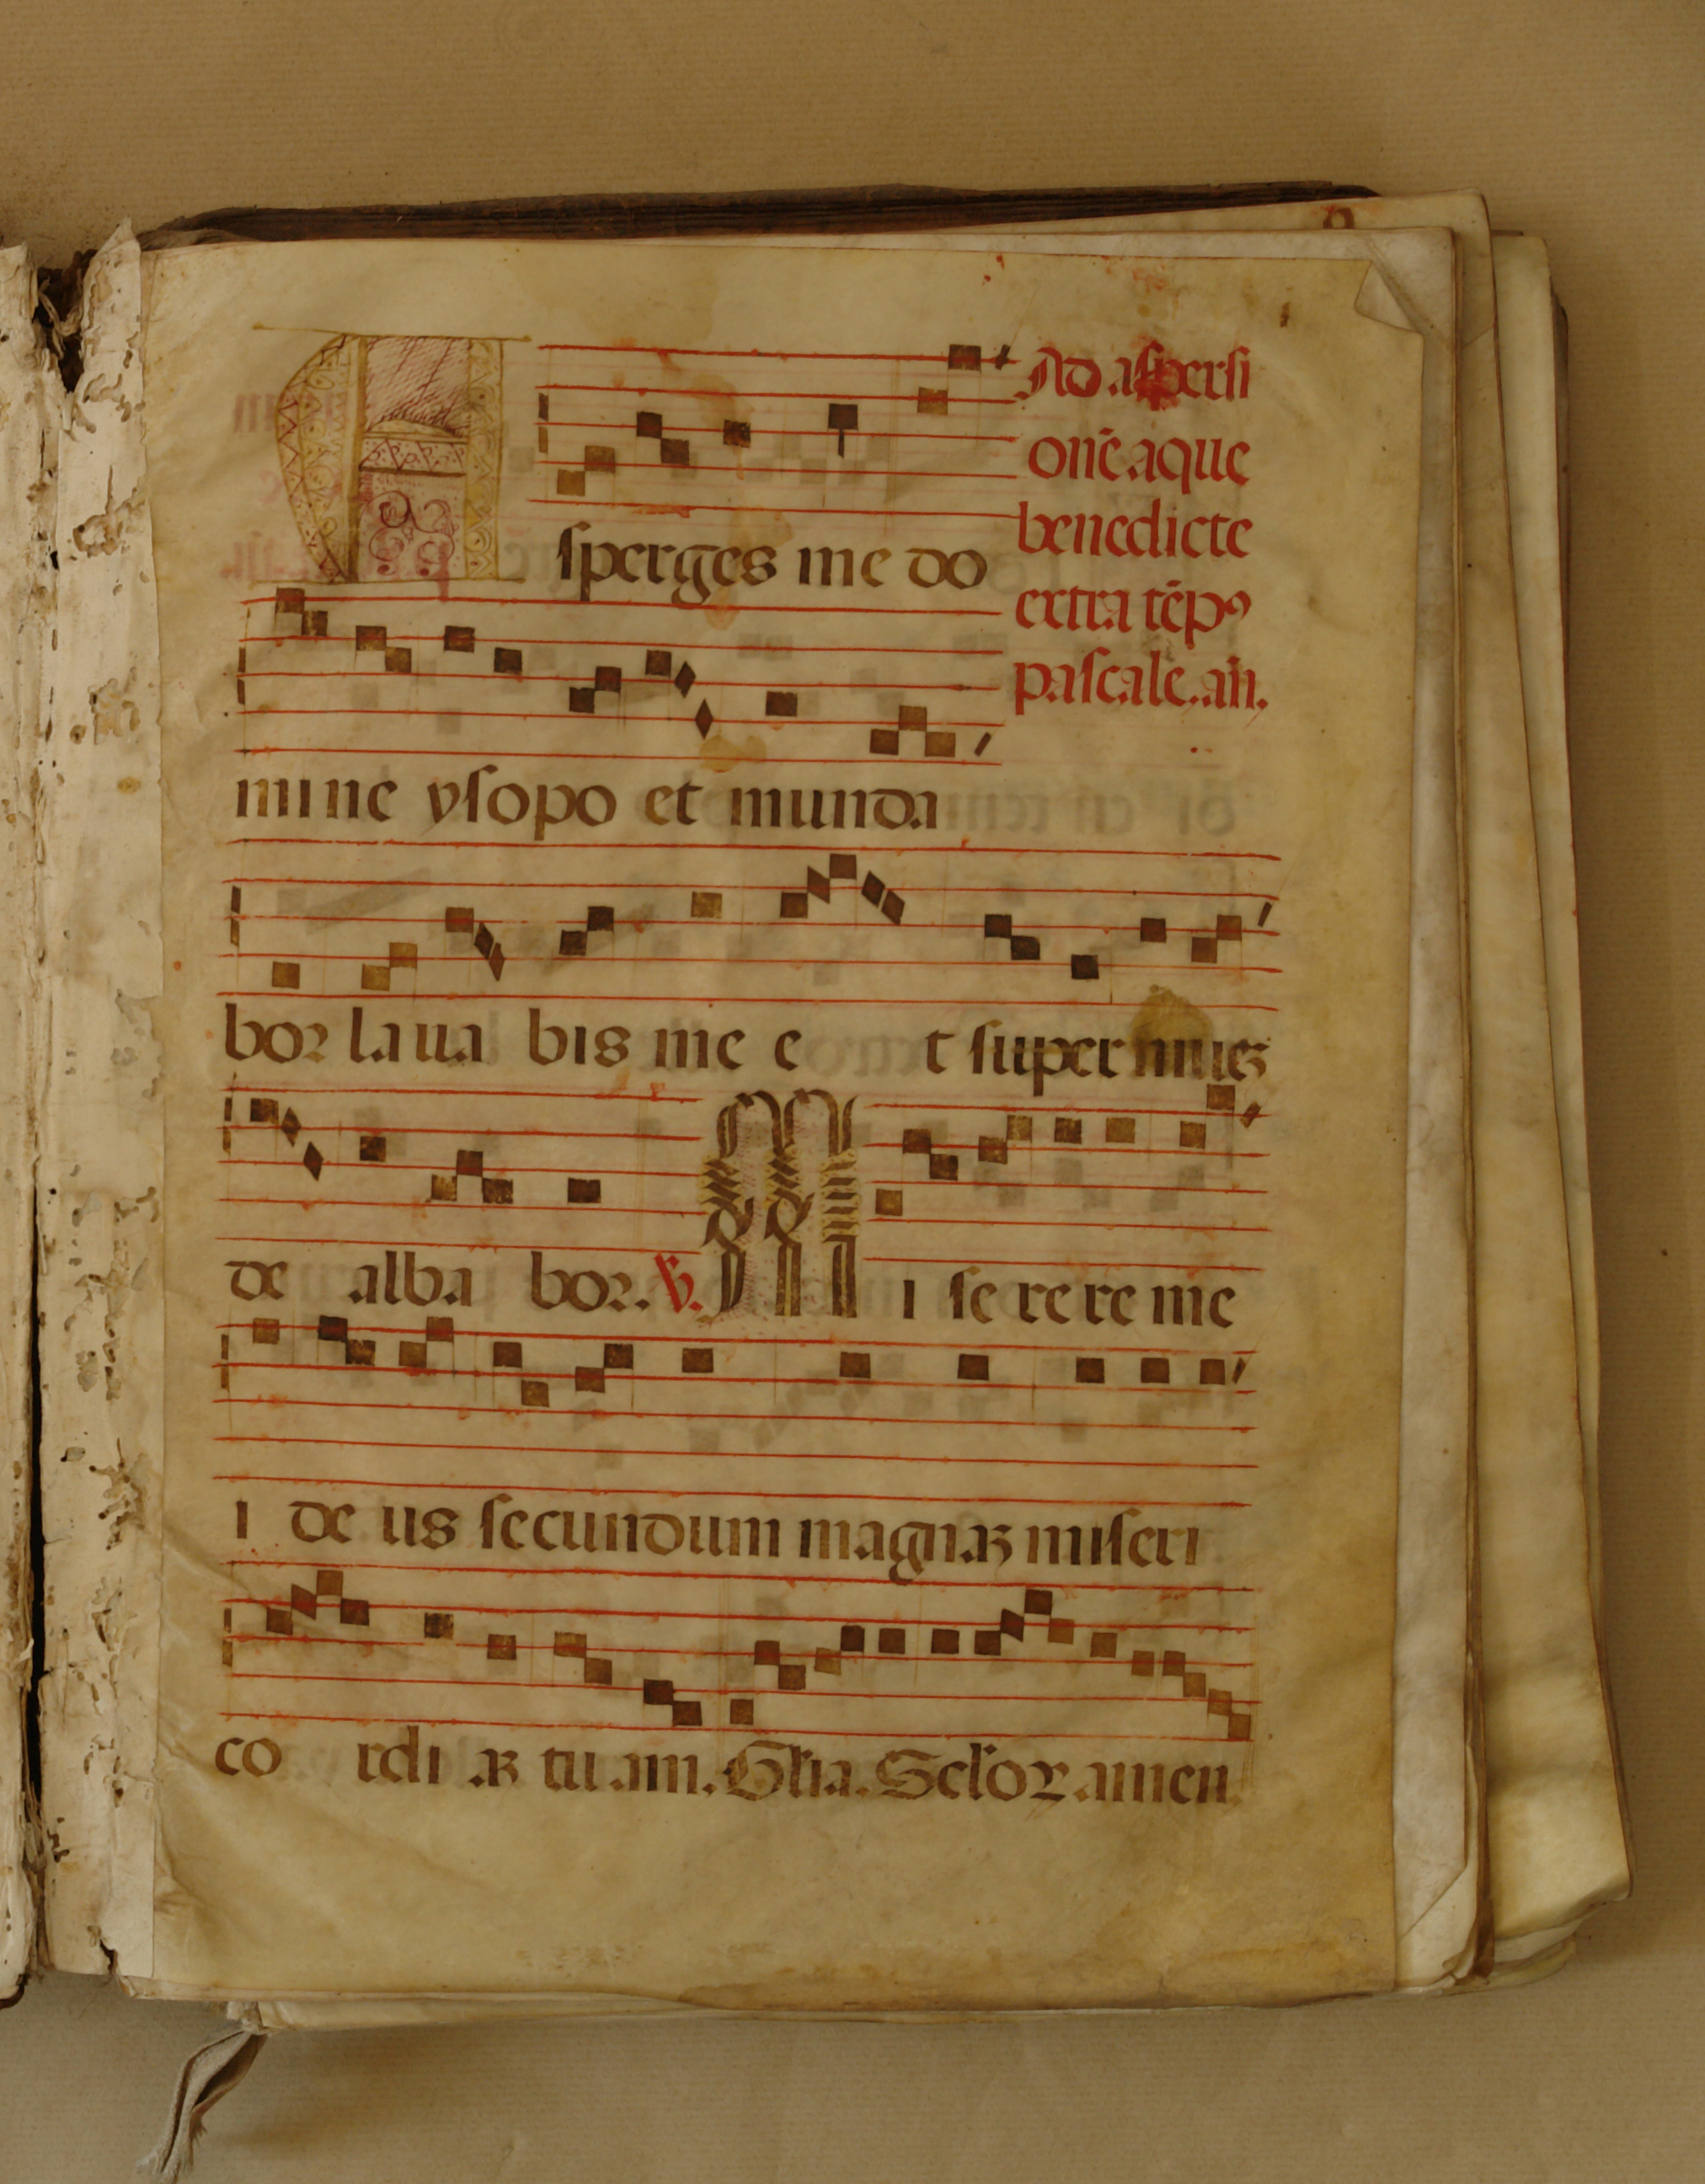 Ad aspersi
onē aque
benedicte
extra tēpꝰ
pascale. añ.
Asperges me do
mine ysopo et munda
bor laua bis me e t super niueꝫ
de alba bor. ℣. Mi se re re me
i de us secundum magnaꝫ miseri
co rdi aꝫ tu am. Glia. Sclōꝝ amen.